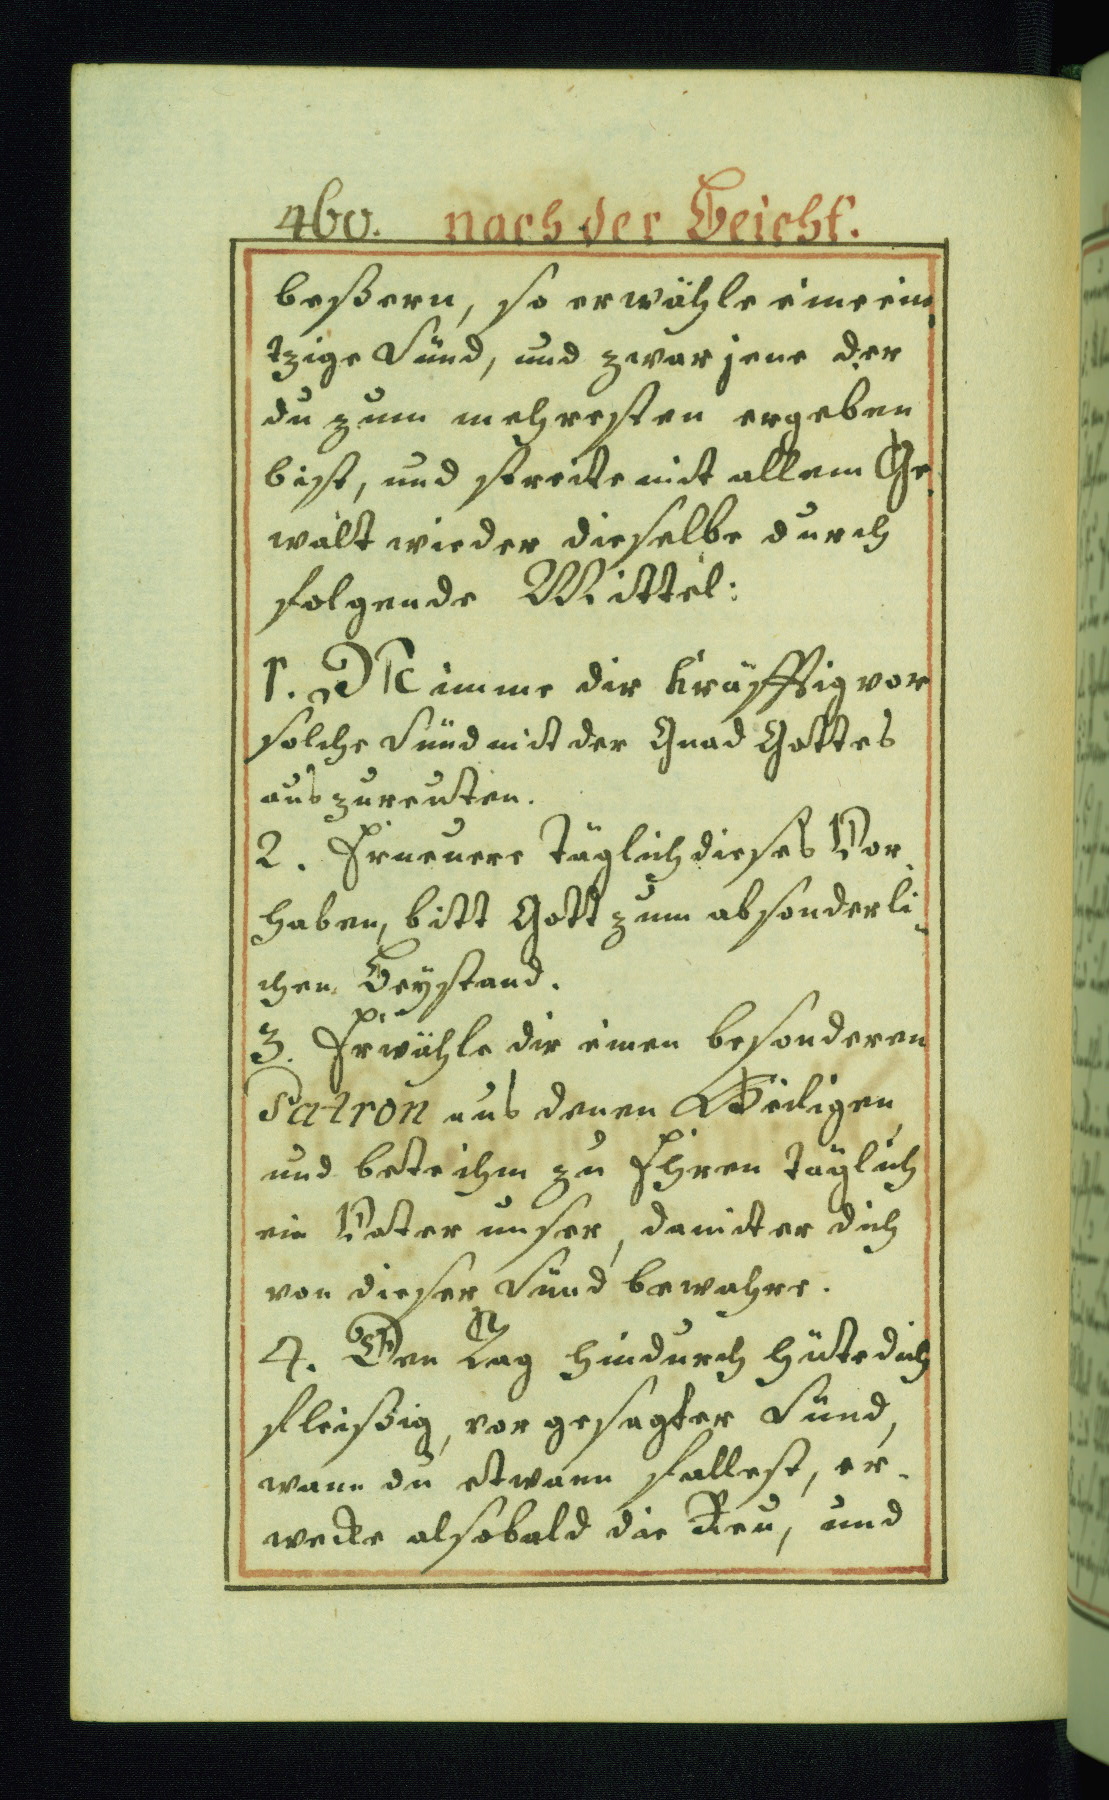 460. nach der Beicht.
beßern, so erwähle eine ein-
tzige Sünd, und zwar jene der
du zum mehresten ergeben
bist, und streite mit allem Ge-
walt wieder dieselbe durch
folgende Mittel:
1. Nimme dir kräfftig vor
solche Sünd mit der Gnad Gottes
auszureuten.
2. Erneuere täglich dieses Vor-
haben, bitt Gott zum absonderli-
chen Beystand.
3. Erwähle dir einen besonderen
Patron aus denen Heiligen,
und bete ihm zu Ehren täglich
ein Vater unser, damit er dich
von dieser Sünd bewahre.
4. Den Tag hindurch hüte dich
fleißig, vor gesagter Sünd,
wann du etwann fallest, er-
wecke alsobald die Reu, und